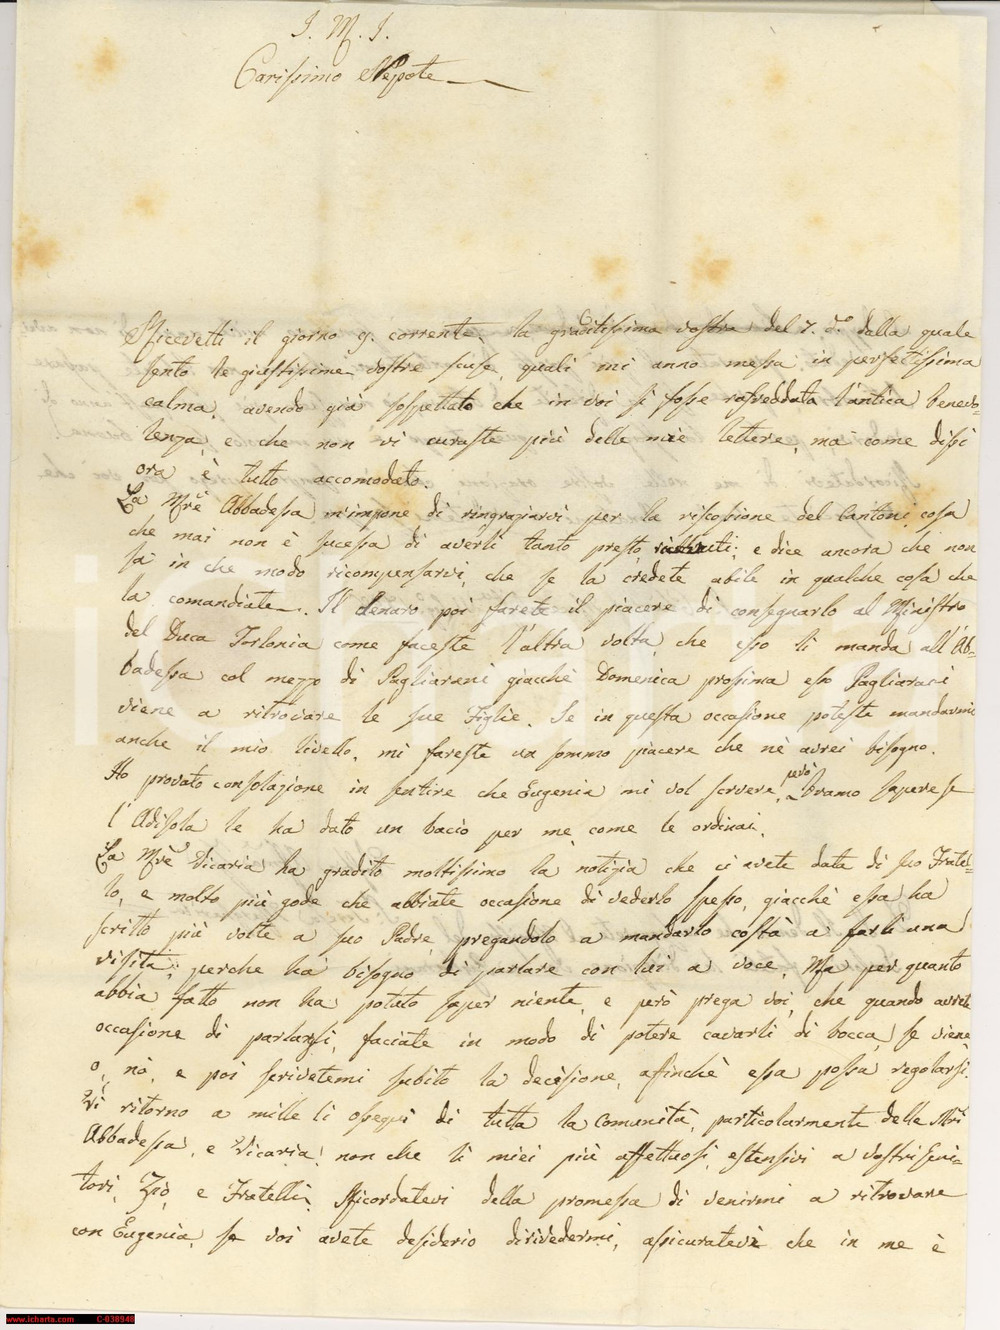 J. M. J.
Carissimo Nepote
Ricevetti il giorno 9. corrente la graditissima vostra del 7. d.o dalla quale
sento le giustissime vostre scuse, quali mi anno messa in perfettissima
calma, avendo già sospettato che in voi si fosse rafreddata l'antica benevo-
lenza, e che non vi curaste più delle mie lettere, ma come dissi
ora è tutto accomodato.
La Mre Abbadessa m'impone di ringraziarvi per la riscossione del Cantoni, cosa
che mai non è sucessa di averli tanto presto, e dice ancora che non
sà in che modo ricompensarvi, che se la credete abile in qualche cosa che
la comandiate. Il denaro poi farete il piacere di consegnarlo al Ministro
del Duca Torlonia come faceste l'altra volta, che esso li manda all'Ab-
badessa col mezzo di Pagliarani giacchè Domenica prossima esso Pagliarani
viene a ritrovare le sue Figlie. Se in questa occasione poteste mandarmi
anche il mio livello, mi fareste un sommo piacere che nè avrei bisogno.
Ho provato consolazione in sentire che Eugenia mi vol scrvere, però bramo sapere se
l'Adisola le ha dato un bacio per me come le ordinai.
La Mre Vicaria ha gradito moltissimo la notizia che ci avete data di suo Fratel-
lo, e molto più gode che abbiate occasione di vederlo spesso, giacchè essa ha
scritto più volte a suo Padre, pregandolo a mandarlo costà a farli una
visita, perche ha bisogno di parlare con lui a voce, Ma per quanto
abbia fatto non ha potuto saper niente, e però prega voi, che quando avrete
occasione di parlargli, faciate in modo di potere cavarli di bocca, se viene
o, nò, e poi scrivetemi subito la decisione, afinchè essa possa regolarsi.
Vi ritorno a mille li ossequi di tutta la Comunità, particolarmente delle Mri
Abbadessa, e Vicaria, non che li miei più affettuosi, estensivi a vostri Geni-
tori, Zio, e Fratelli. Ricordatevi della promessa di venirmi a ritrovare
con Eugenia, se voi avete desiderio di rivedermi, assicuratevi che in me è
iCharta
www.icharta.com C-038948